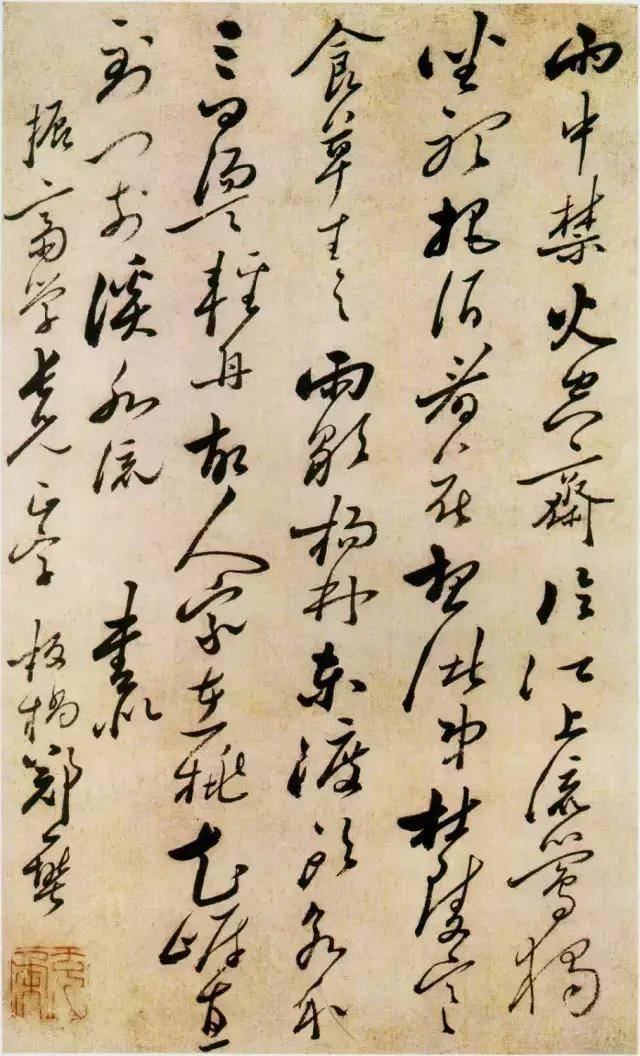 雨中禁火空齋冷江上流鶯獨
坐聽把酒看花想諸弟杜陵寒
食草青々雨歇楊林東渡頭永和
三日盪輕舟故人家在桃花岸直
到門前溪水流 書似
振齋学長兄正字 板橋鄭燮